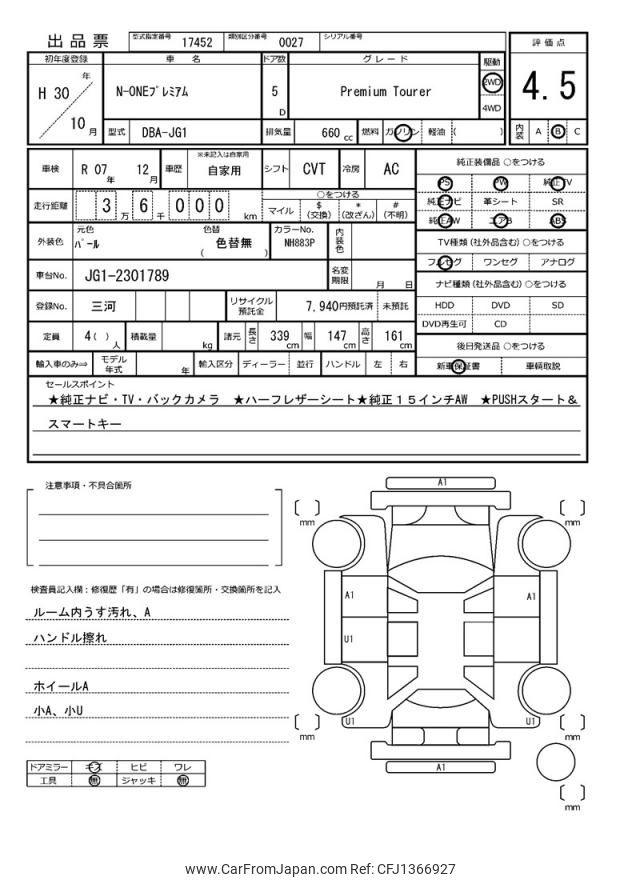 出品票 型式指定番号 17452 類別区分番号 0027 シリアル番号
評価点
4.5
初年度登録 車名 ドア数 グレード 駆動
H 30 年 10 月
N-ONEﾌﾟﾚﾐｱﾑ 5 D Premium Tourer 2WD
4WD
型式 DBA-JG1 排気量 660 cc 燃料 ガソリン 軽油 ( )
内装 A B C
車検 R 07 年 12 月 車歴 ※未記入は自家用 自家用 シフト CVT 冷房 AC
純正装備品 ○をつける
PS PW 純正TV
純正ナビ 革シート SR
純正AW エアB ABS
走行距離 3 万 6 千 0 0 0 km
○をつける
マイル $ (交換) * (改ざん) # (不明)
外装色 元色 ﾊﾟｰﾙ 色替 ( 色替無 ) カラーNo. NH883P 内装色
TV種類 (社外品含む) ○をつける
フルセグ ワンセグ アナログ
車台No. JG1-2301789 名変期限 月 日
ナビ種類 (社外品含む) ○をつける
HDD DVD SD
DVD再生可 CD
登録No. 三河 リサイクル預託金 7,940円預託済 未預託
定員 4( ) 人 積載量 kg 諸元 長さ 339 cm 幅 147 cm 高さ 161 cm
後日発送品 ○をつける
新車保証書 車輌取説
輸入車のみ⇒ モデル年式 年 輸入区分 ディーラー 並行 ハンドル 左 右
セールスポイント
★純正ナビ・TV・バックカメラ ★ハーフレザーシート★純正１５インチAW ★PUSHスタート&
スマートキー
注意事項・不具合箇所
検査員記入欄：修復歴「有」の場合は修復箇所・交換箇所を記入
ルーム内うす汚れ、A
ハンドル擦れ
ホイールA
小A、小U
ドアミラー キズ ヒビ ワレ
工具 無 ジャッキ 無
A1
[ ] mm [ ] mm
A1 A1
U1
U1 U1
[ ] mm [ ] mm
A1
[ ] mm
www.CarFromJapan.com Ref: CFJ1366927